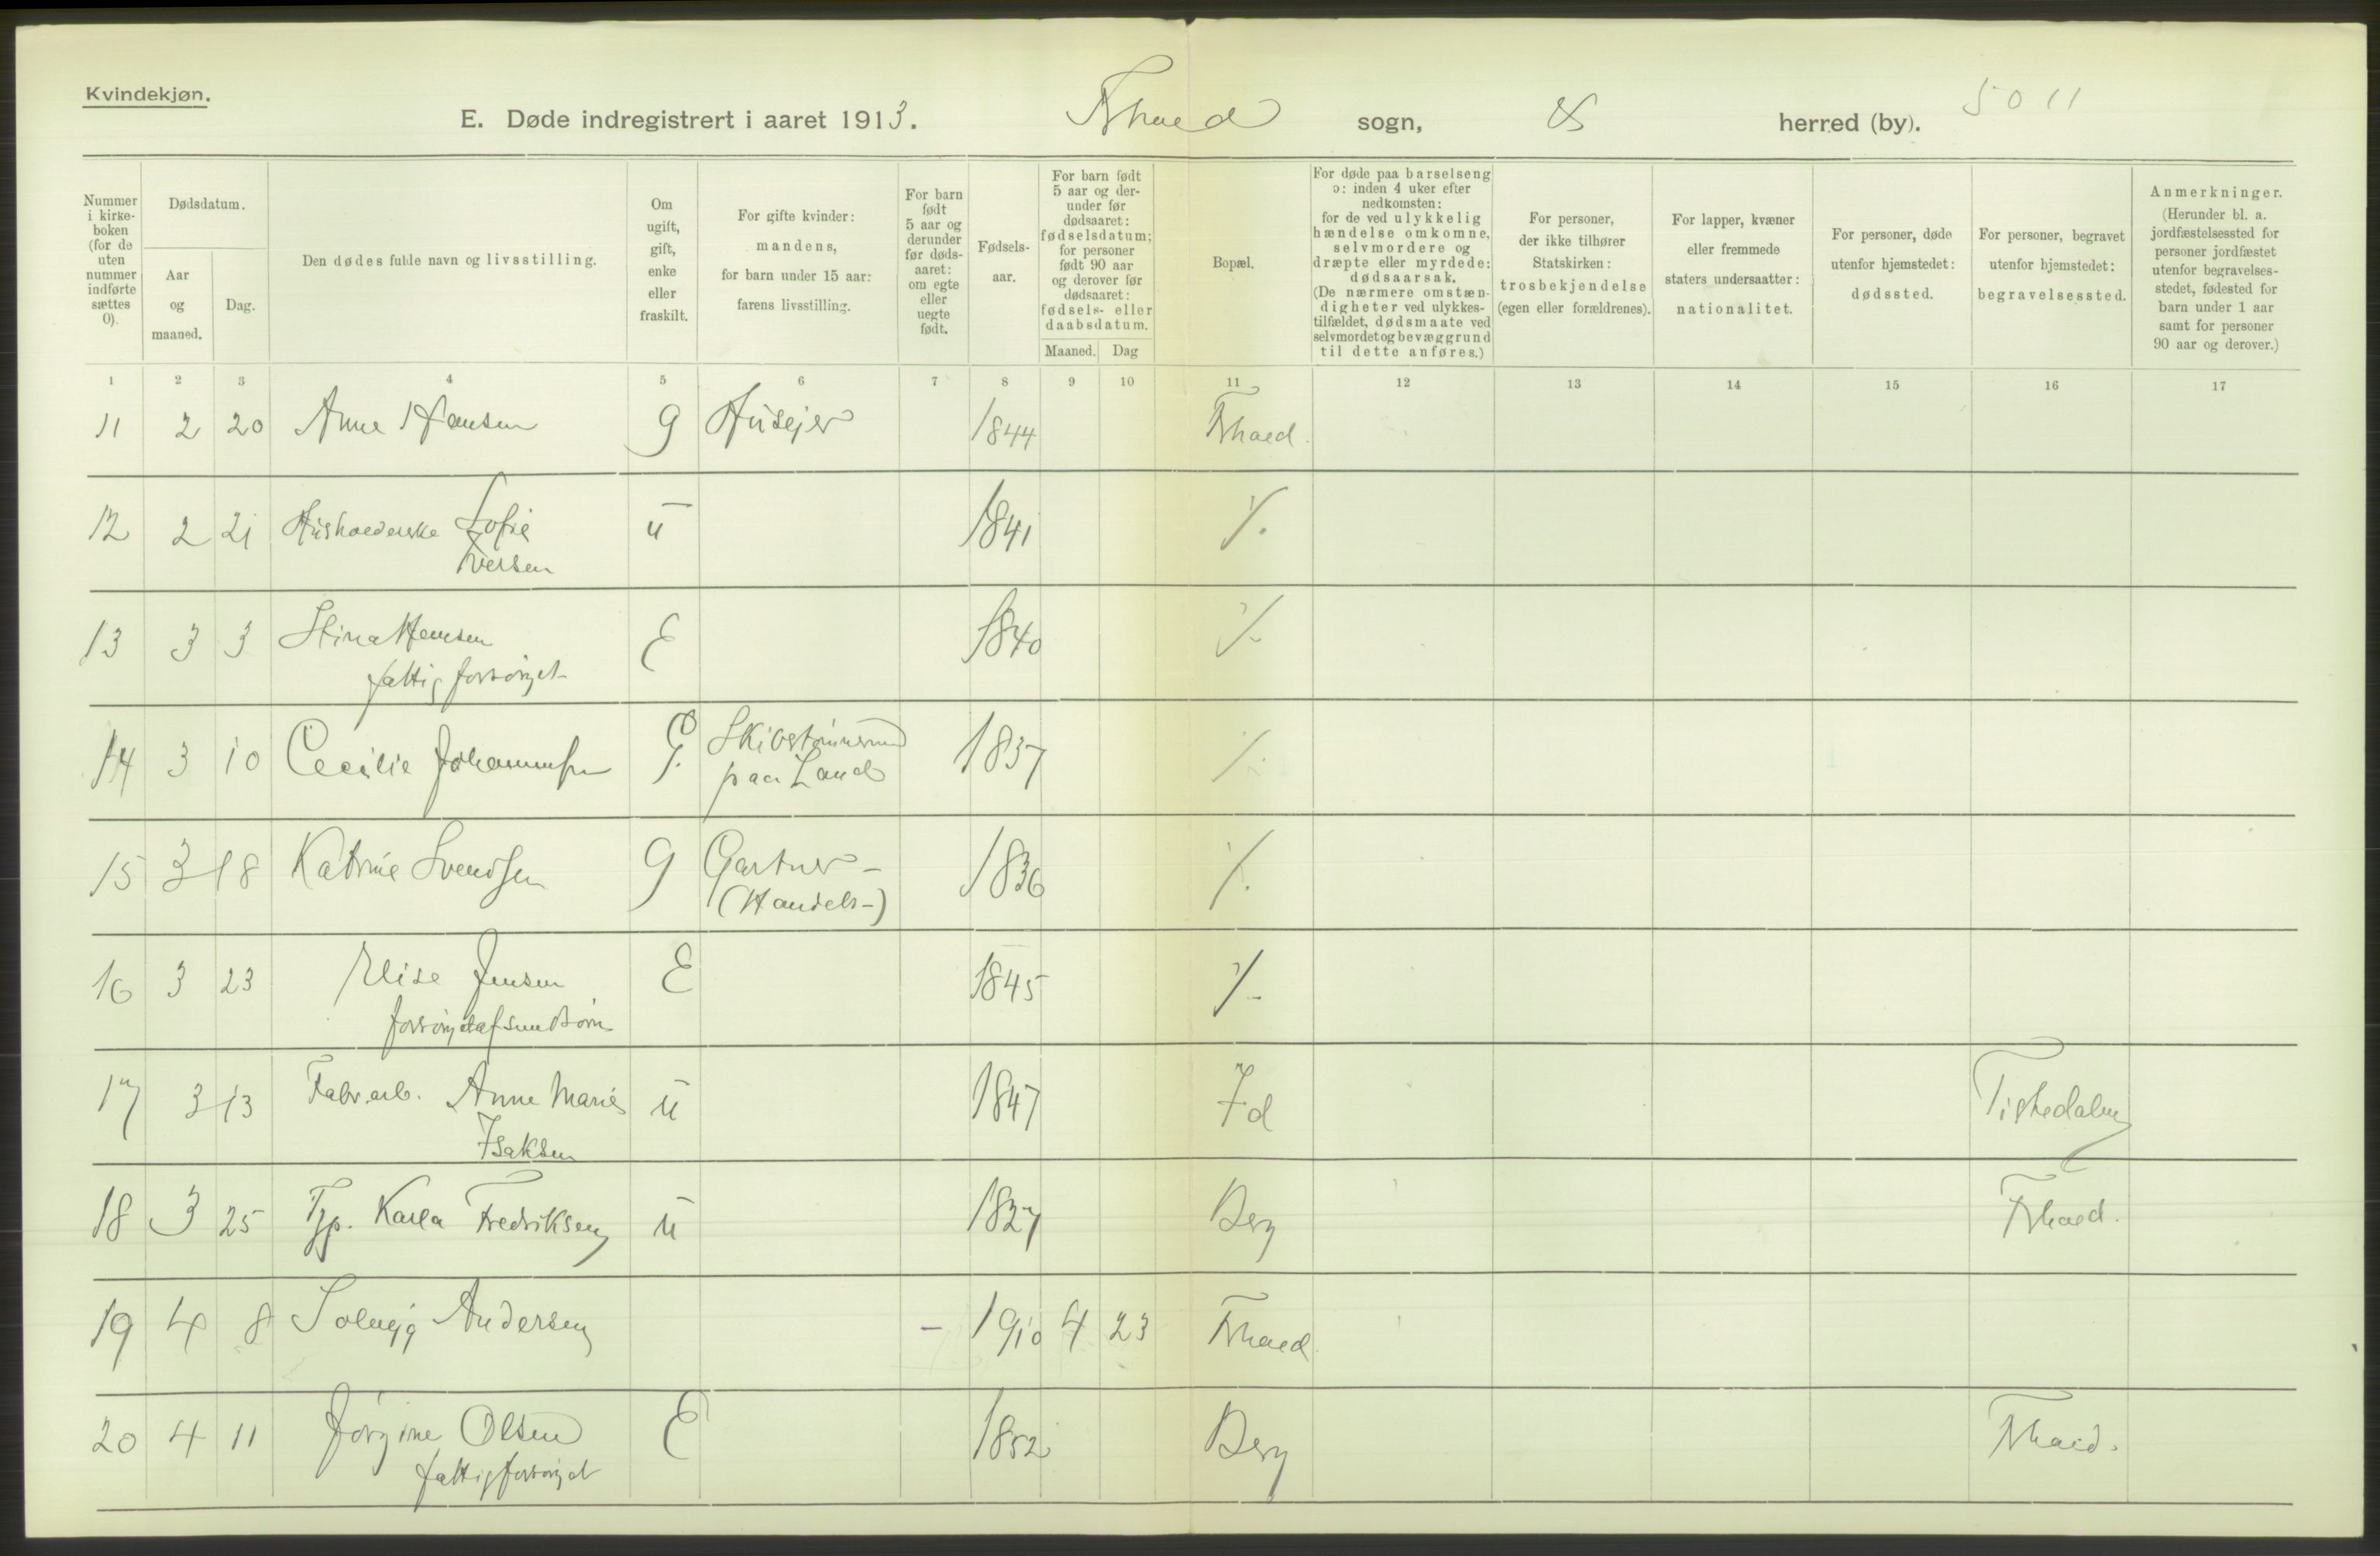 Kvindekjøn.
E. Døde indregistrert i aaret 1913. Frhald sogn, herred (by). 5011
Nummer i kirke-boken (for de uten nummer indførte sættes 0).
Dødsdatum.
Aar og maaned.
Dag.
Den dødes fulde navn og livsstilling.
Om ugift, gift, enke eller fraskilt.
For gifte kvinder: mandens, for barn under 15 aar: farens livsstilling.
For barn født 5 aar og derunder før døds-aaret: om egte eller uegte født.
Fødsels-aar.
For barn født 5 aar og der-under før dødsaaret: fødselsdatum; for personer født 90 aar og derover før dødsaaret: fødsels- eller daabsdatum.
Maaned. Dag
Bopæl.
For døde paa barselseng ɔ: inden 4 uker efter nedkomsten: for de ved ulykkelig hændelse omkomne, selvmordere og dræpte eller myrdede: dødsaarsak. (De nærmere omstæn-digheter ved ulykkes-tilfældet, dødsmaate ved selvmordet og bevæggrund til dette anføres.)
For personer, der ikke tilhører Statskirken: trosbekjendelse (egen eller forældrenes).
For lapper, kvæner eller fremmede staters undersaatter: nationalitet.
For personer, døde utenfor hjemstedet: dødssted.
For personer, begravet utenfor hjemstedet: begravelsessted.
Anmerkninger. (Herunder bl. a. jordfæstelsessted for personer jordfæstet utenfor begravelses-stedet, fødested for barn under 1 aar samt for personer 90 aar og derover.)
1 2 3 4 5 6 7 8 9 10 11 12 13 14 15 16 17
11 2 20 Anne Hansen g Husejer 1844 Frhald.
12 2 21 Husholderske Sofie u 1841 %.
Iversen
13 3 3 Stina Hansen E 1840 %
fattigforsørget
14 3 10 Cecilie Johannesen G. Skibstømmermand 1837 %
paa Land
15 3 18 Katrine Svendsen g Gartner – 1836 %.
(Handels-)
16 3 23 Elise Jensen E 1845 %
forsørget af sine Børn
17 3 13 Fabr.arb. Anne Marie u 1847 Id Tistedalen
Isaksen
18 3 25 Tjp. Karla Fredriksen u 1827 Berg Frhald.
19 4 8 Solveig Andersen – 1910 4 23 Frhald.
20 4 11 Jørgine Olsen E 1852 Berg Frhald.
fattigforsørget